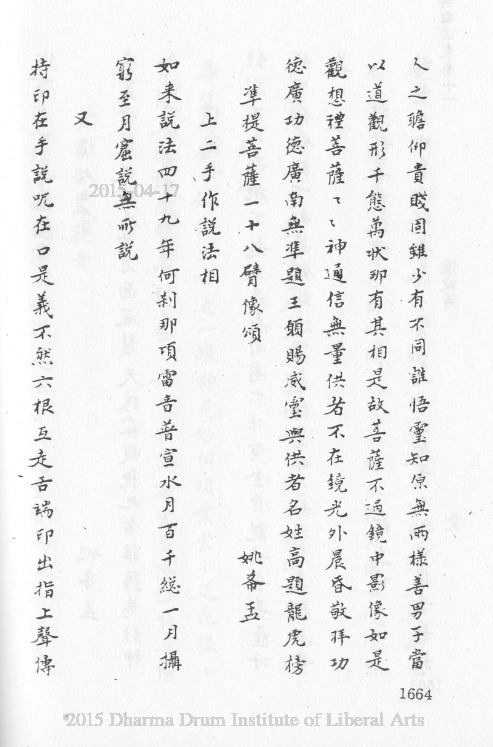 人之瞻仰貴賤因雖少有不同誰悟靈知原無兩樣善男子當
以道觀形千態萬狀那有其相是故菩薩不過鏡中影像如是
觀想禮菩薩〻〻神通信無量供者不在鏡光外晨昏敬拜功
德廣功德廣南無準題王願賜威靈與供者名姓高題龍虎榜
準提菩薩一十八臂像頌
姚希孟
上二手作說法相
如來說法四十九年何剎那項雷音普宣水月百千總一月攝
窮至月窟說無所說
又
持印在手說呪在口是義不然六根互走舌端印出指上聲傳
1664
2015-04-17
©2015 Dharma Drum Institute of Liberal Arts